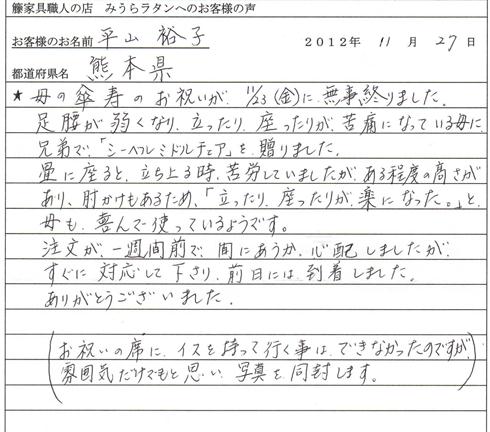 籐家具職人の店 みうらラタンへのお客様の声
お客様のお名前 平山 裕子 2012年 11月 27日
都道府県名 熊本県
★母の傘寿のお祝いが、11/23(金)に無事終りました。
足腰が弱くなり、立ったり、座ったりが、苦痛になっている母に
兄弟で、「シーベルミドルチェア」を贈りました。
畳に座ると、立ち上る時、苦労していましたが、ある程度の高さが
あり、肘かけもあるため、「立ったり、座ったりが、楽になった。」と、
母も、喜んで使っているようです。
注文が、一週間前で、間にあうか、心配しましたが、
すぐに対応して下さり、前日には、到着しました。
ありがとうございました。
(お祝いの席に、イスを持って行く事は、できなかったのですが
雰囲気だけでもと思い、写真を同封します。)